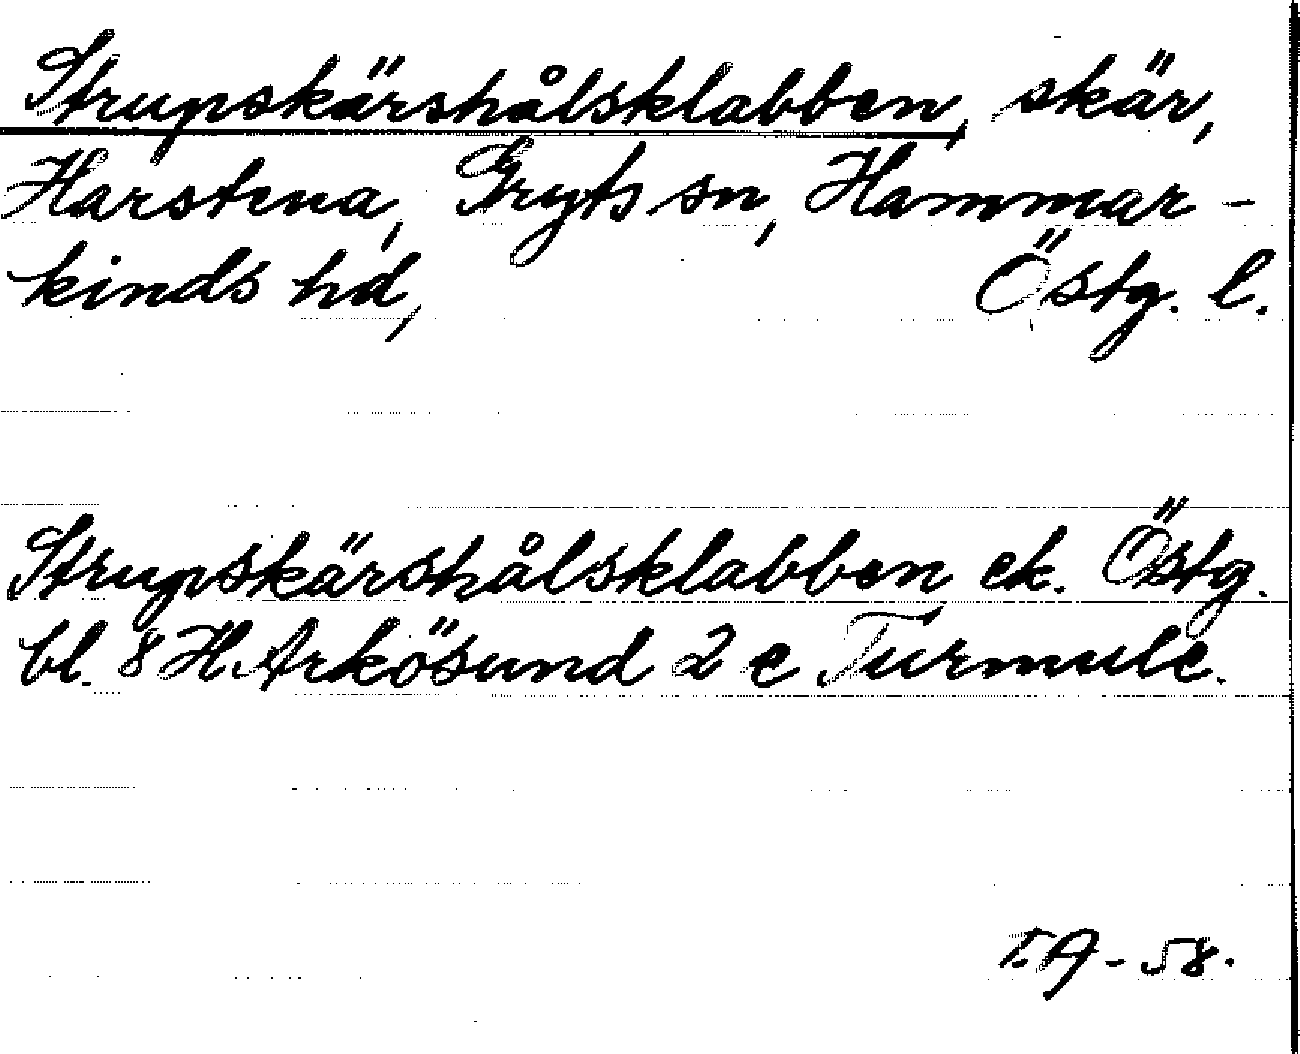 Strupskärshålsklabben, skär,
Harstena, Gryts sn, Hammar-
kinds hd, Östg. l.
Strupskärshålsklabben ek. Östg.
bl. 8 H Arkösund 2 e Turmule.
T.A-58.